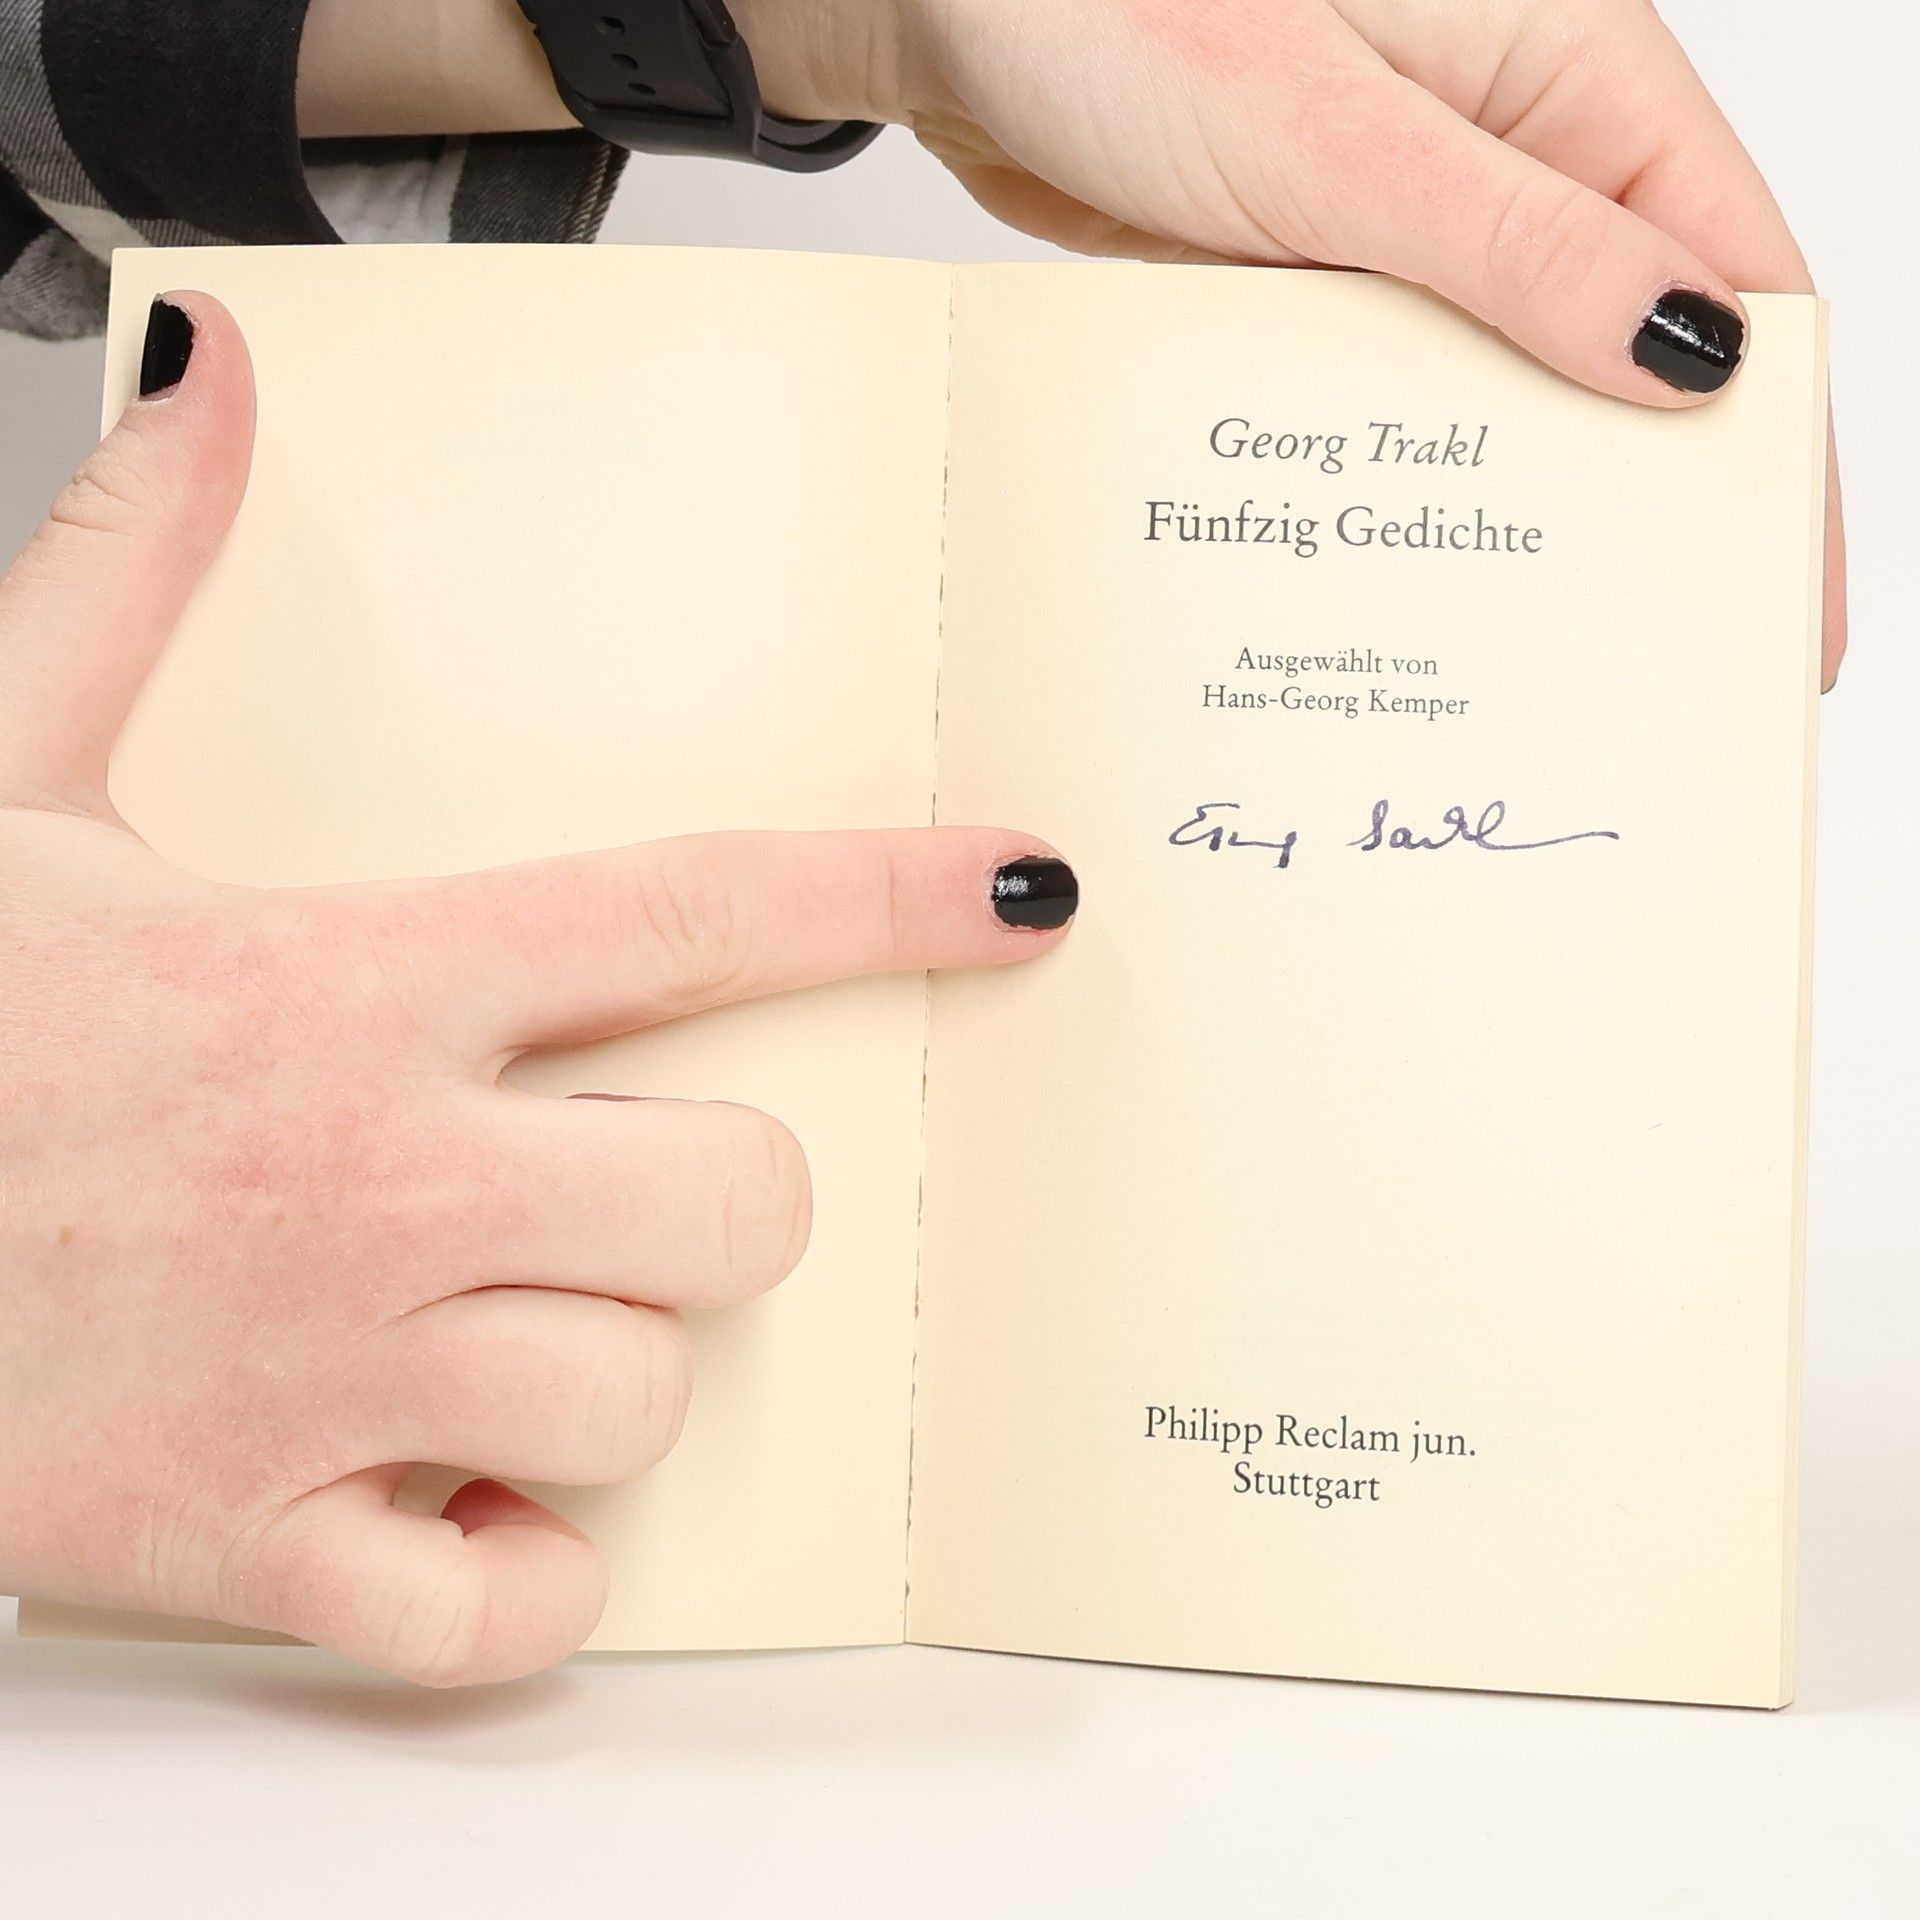 Georg Trakl
Fünfzig Gedichte
Ausgewählt von
Hans-Georg Kemper
Philipp Reclam jun.
Stuttgart